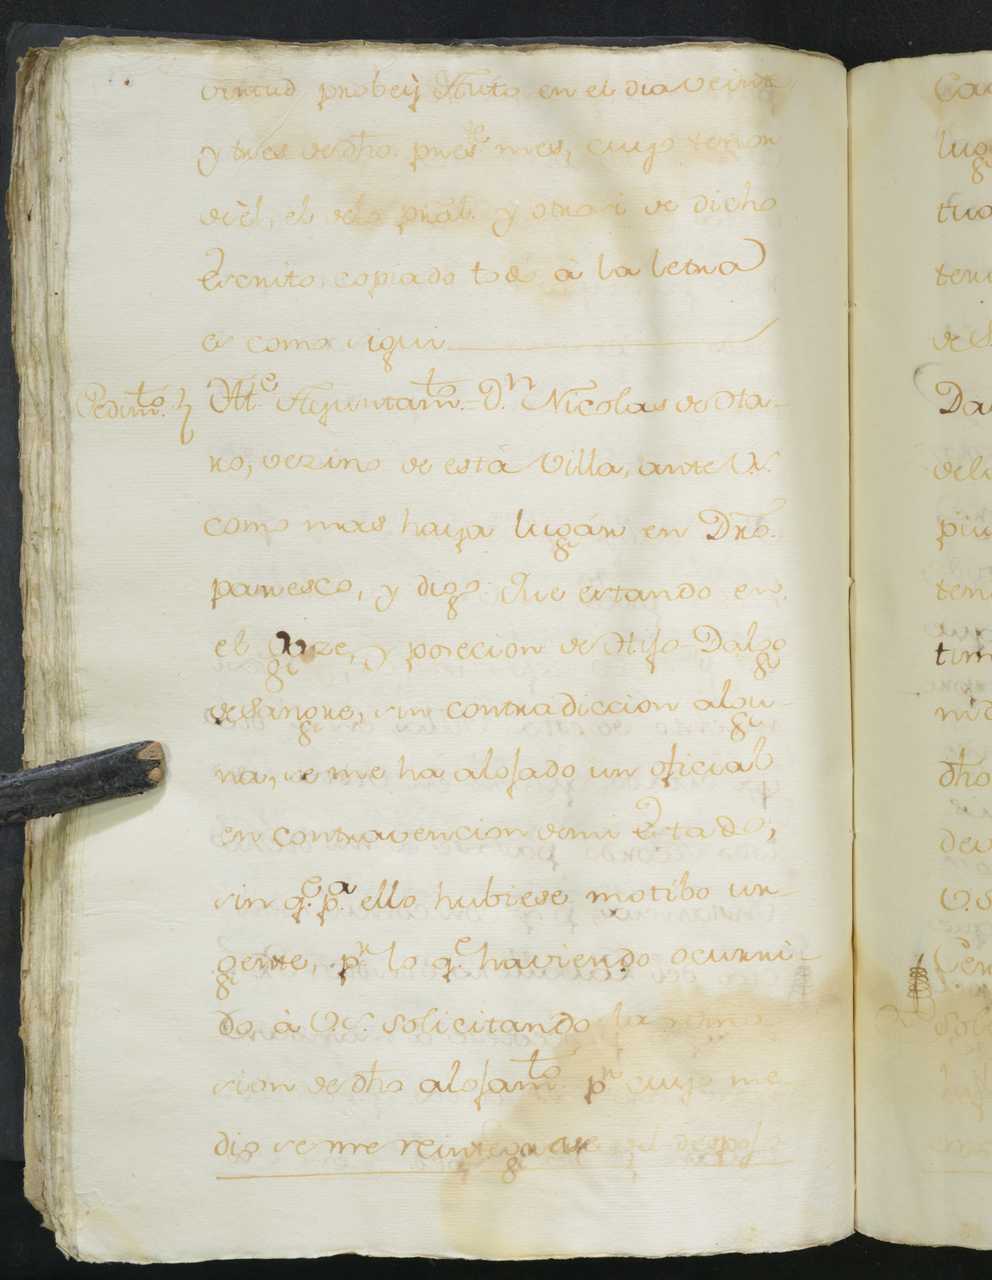 virtud probeÿ Auto en el dia veinte
y tres de dho. pres.te mes, cuyo tenor
de èl, el de lo prâl. y otrosi de dicho
Escrito copiado todo à la letra
es como sigue
Pedim.to
Ill.e Ayuntam.to = D.n Nicolas de Ota-
ro, vezino de està Villa, ante V.S.
como mas haya lugàr en Dro.
paresco, y digo: Que estando en
el Goze, y posecion de Hijo Dalgo
de Sangre, sin contradiccion algu-
na, se me ha alojado un oficial
en contravencion de mi Estado,
sin q.e p.a ello hubiese motibo ur-
gente, p.r lo q.e haviendo ocurri-
do à V.S. solicitando la remo-
cion de dho alojam.to p.r cuyo me-
dio se me reintegrase
Ca
lug
tua
teni
de
Da
tim
dho